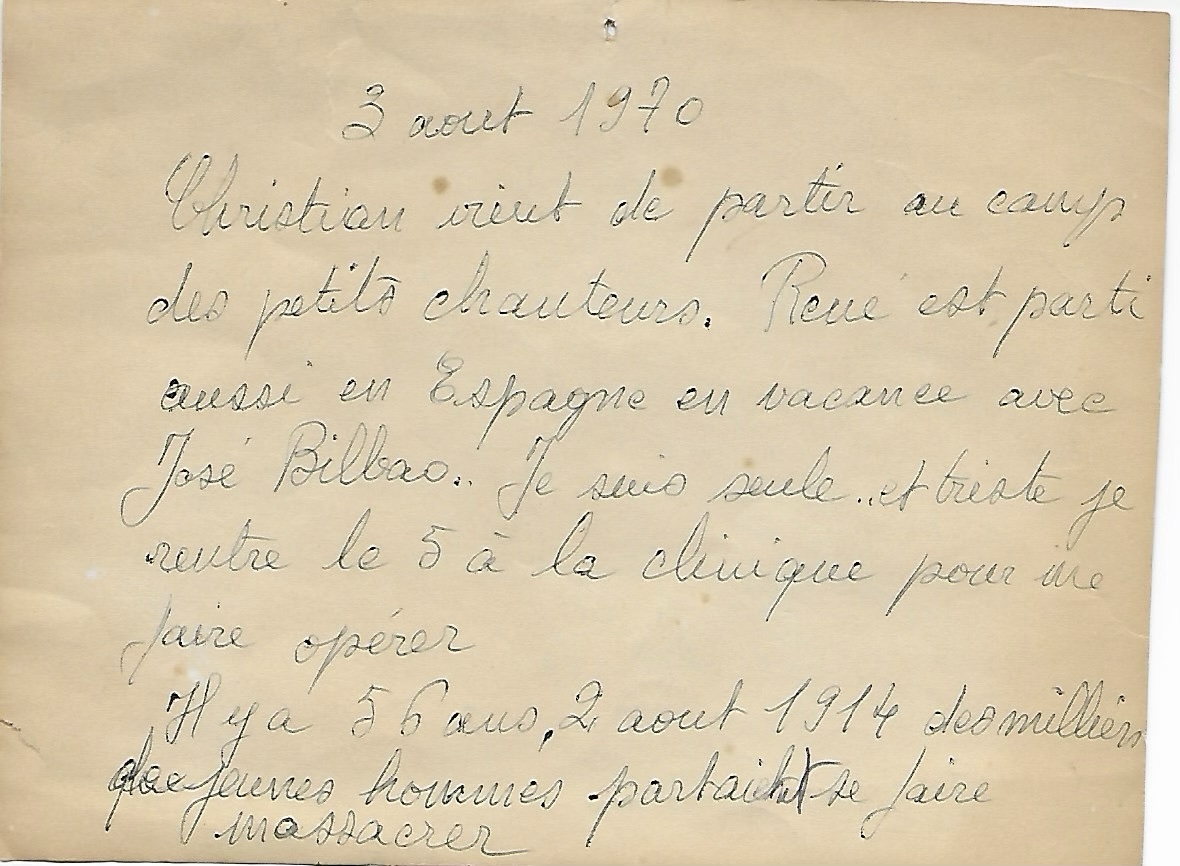 3 aout 1970
Christian vient de partir au camp
des petits chanteurs. René est parti
aussi en Espagne en vacance avec
José Bilbao.. Je suis seule..et triste je
rentre le 5 à la clinique pour me
faire opérer
Il y a 56 ans, 2 aout 1914 des milliers
de jeunes hommes partaient se faire
massacrer